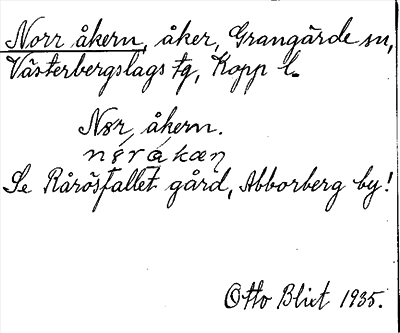 Norr åkern, åker, Grangärde sn,
Västerbergslags tg, Kopp l.
Nør, åkern.
Se Rårösfallet gård, Abborberg by!
Otto Blixt 1935.